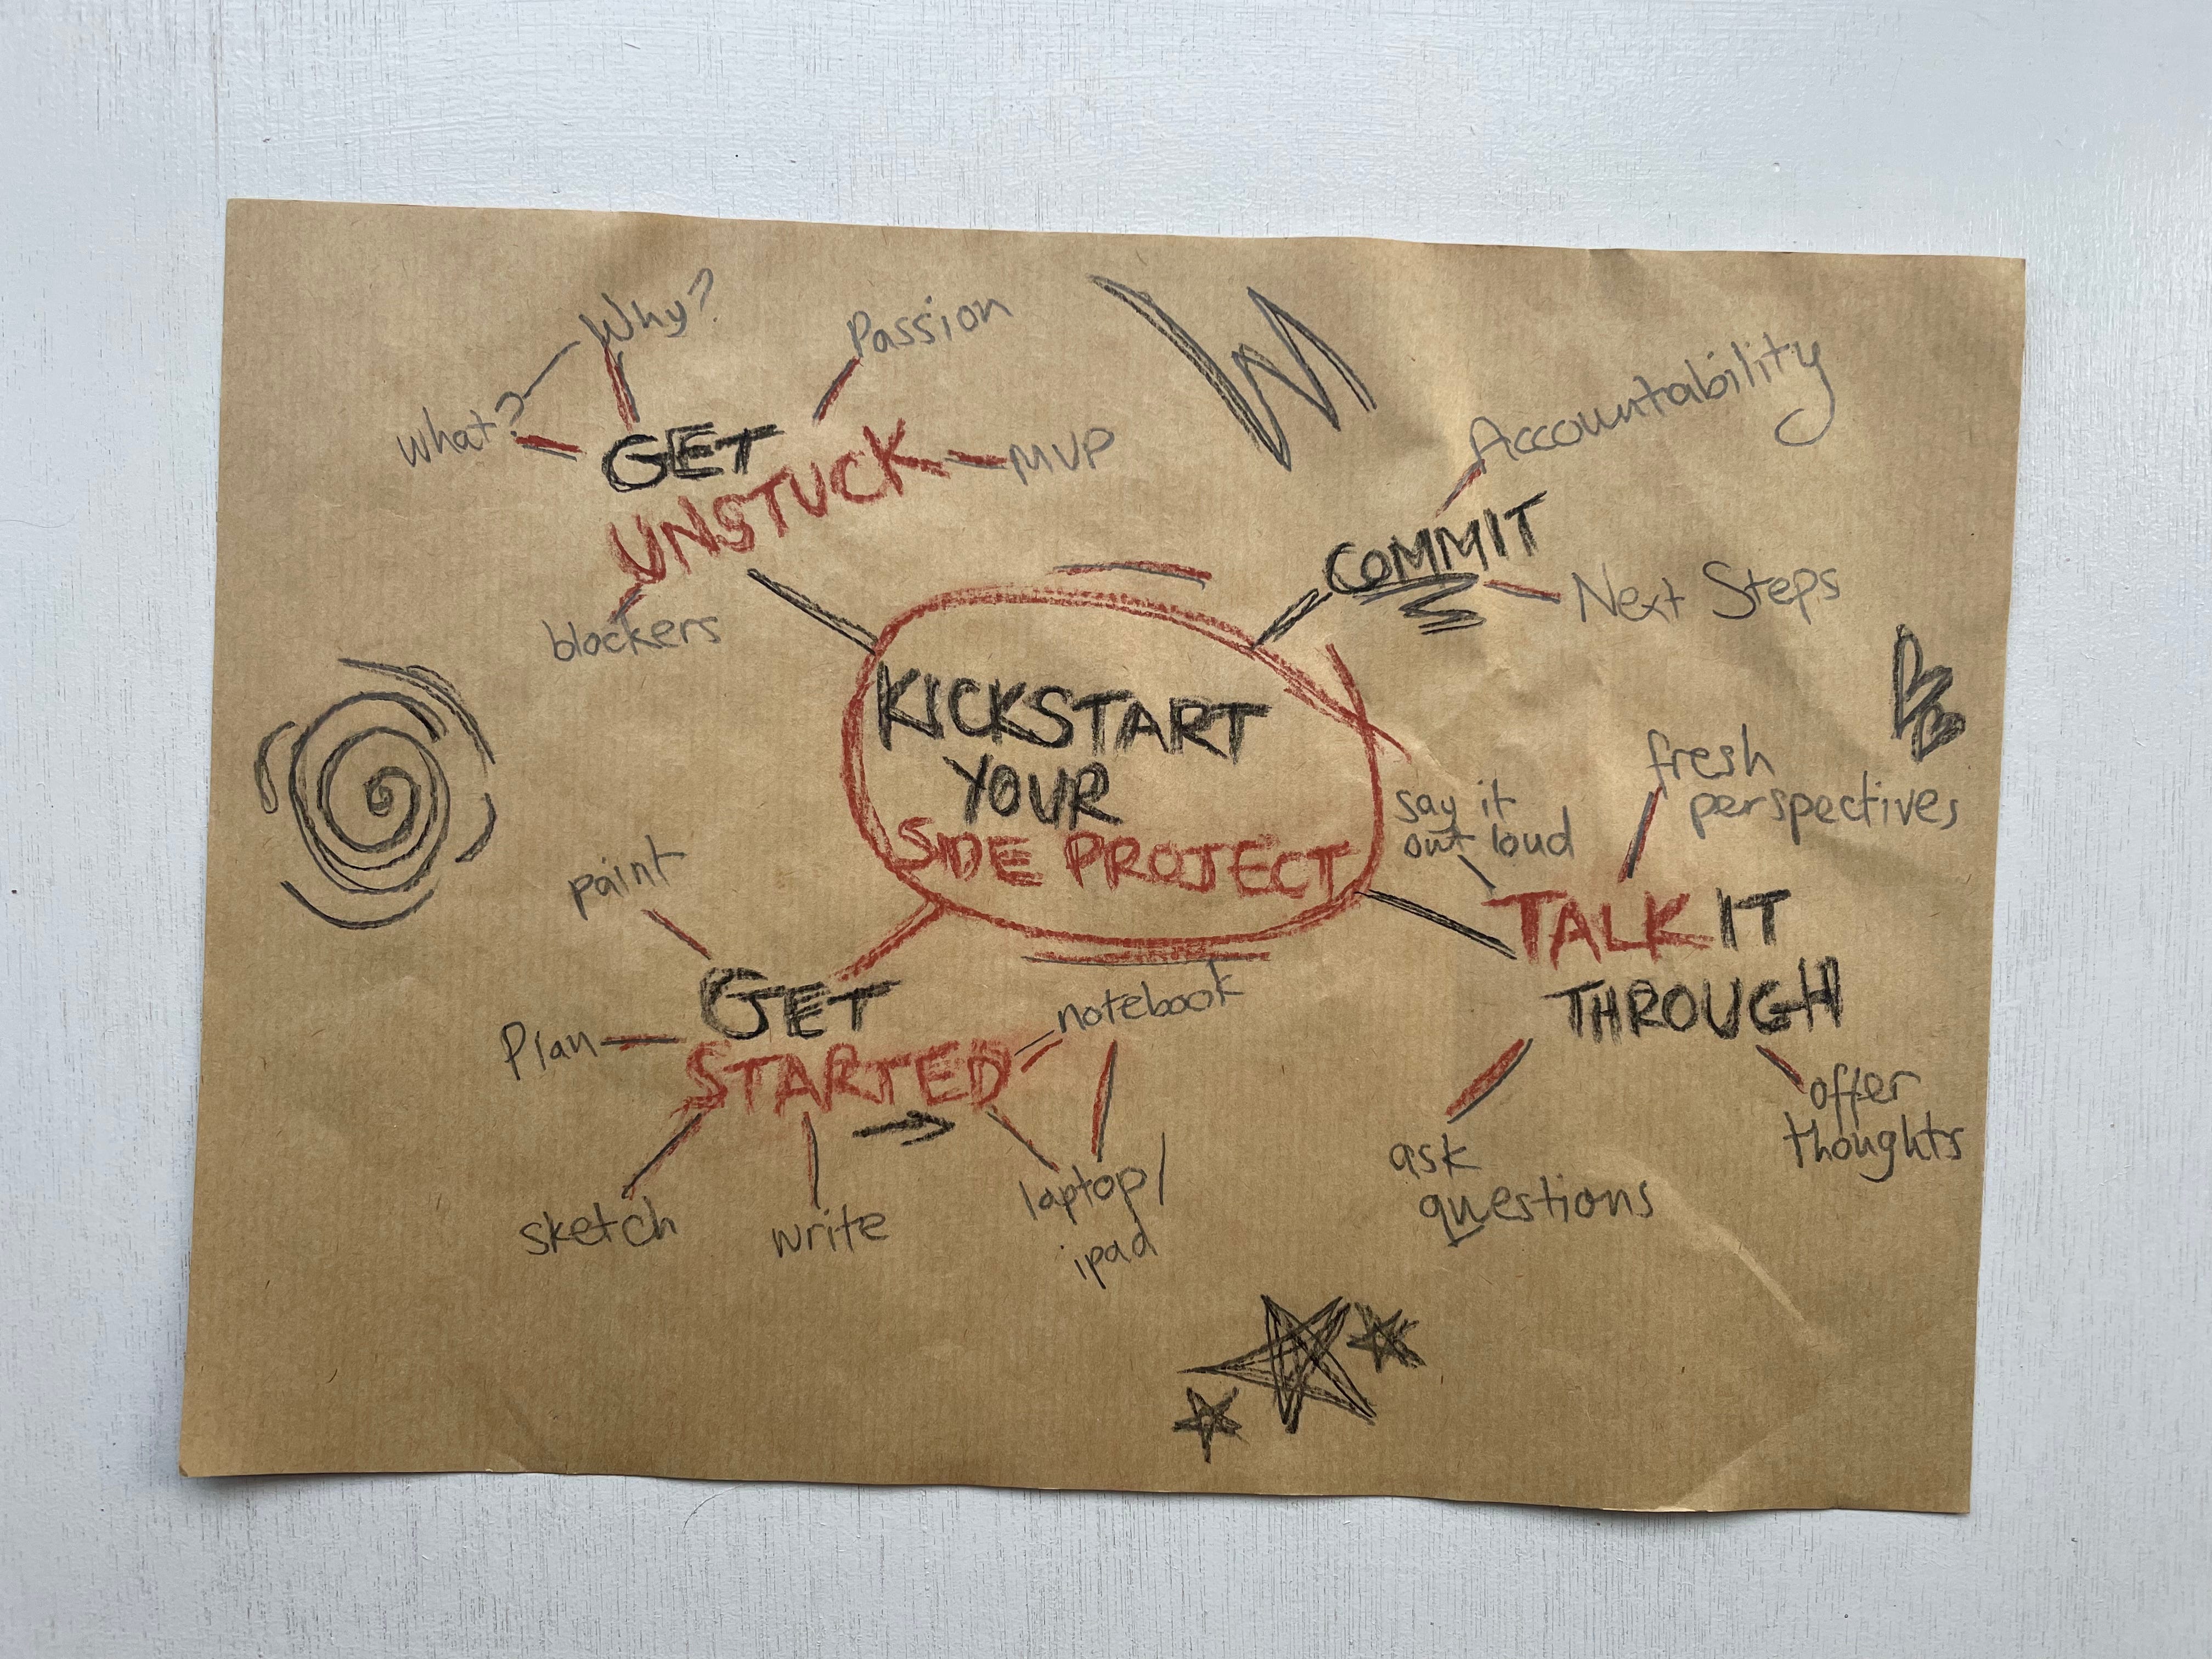 Why?
What?
Passion
GET
UNSTUCK
MVP
blockers
Accountability
COMMIT
Next Steps
KICKSTART
YOUR
SIDE PROJECT
say it
out loud
fresh
perspectives
TALK IT
THROUGH
ask
questions
offer
thoughts
paint
GET
STARTED
Plan
notebook
sketch
write
laptop/
ipad